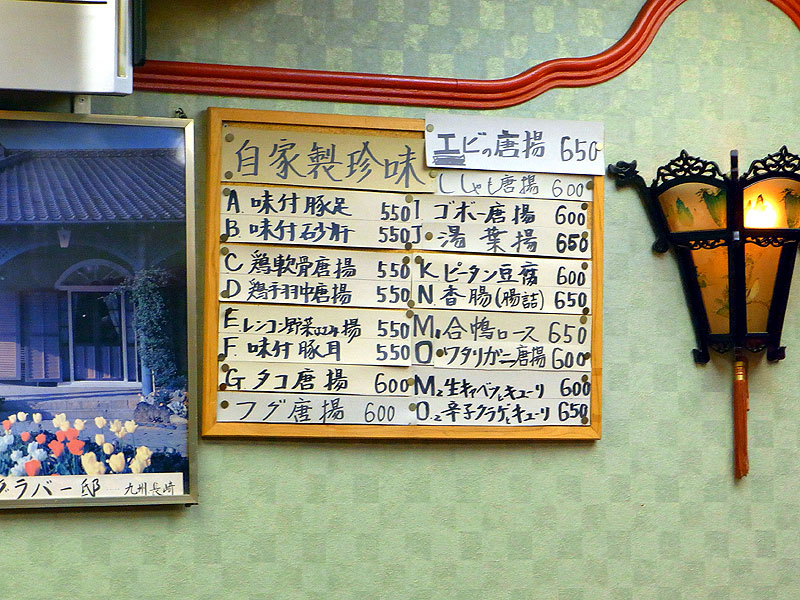 自家製珍味
A. 味付豚足 550
B. 味付砂肝 550
C 鶏軟骨唐揚 550
D 鶏手羽中唐揚 550
E レンコン野菜 揚 550
F. 味付豚耳 550
G タコ唐揚 600
フグ唐揚 600
エビの唐揚 650
ししゃも唐揚 600
I ゴボー唐揚 600
J. 湯葉揚 650
K ピータン豆腐 600
N 香腸(腸詰) 650
M1 合鴨ロース 650
O ワタリガニ唐揚 600
M2 生キャベツとキューリ 600
O2 辛子クラゲとキューリ 650
グラバー邸 九州長崎